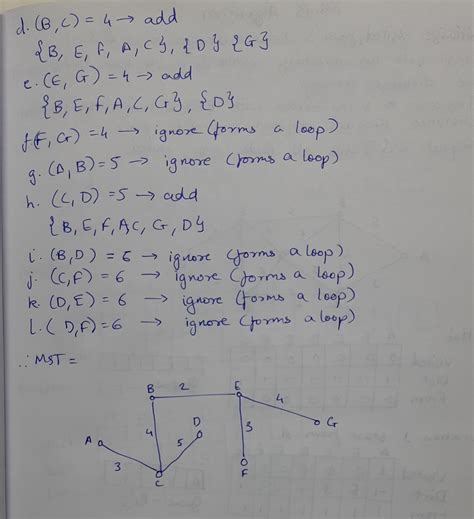 d. (B, C) = 4 → add
{B, E, F, A, C}, {D} {G}
e. (E, G) = 4 → add
{B, E, F, A, C, G}, {D}
f (F, G) = 4 → ignore (forms a loop)
g. (A, B) = 5 → ignore (forms a loop)
h. (C, D) = 5 → add
{B, E, F, A, C, G, D}
i. (B, D) = 6 → ignore (forms a loop)
j. (C, F) = 6 → ignore (forms a loop)
k. (D, E) = 6 → ignore (forms a loop)
l. (D, F) = 6 → ignore (forms a loop)
∴ MST =
B 2 E
4
A 4 5 D G
3 3
C F